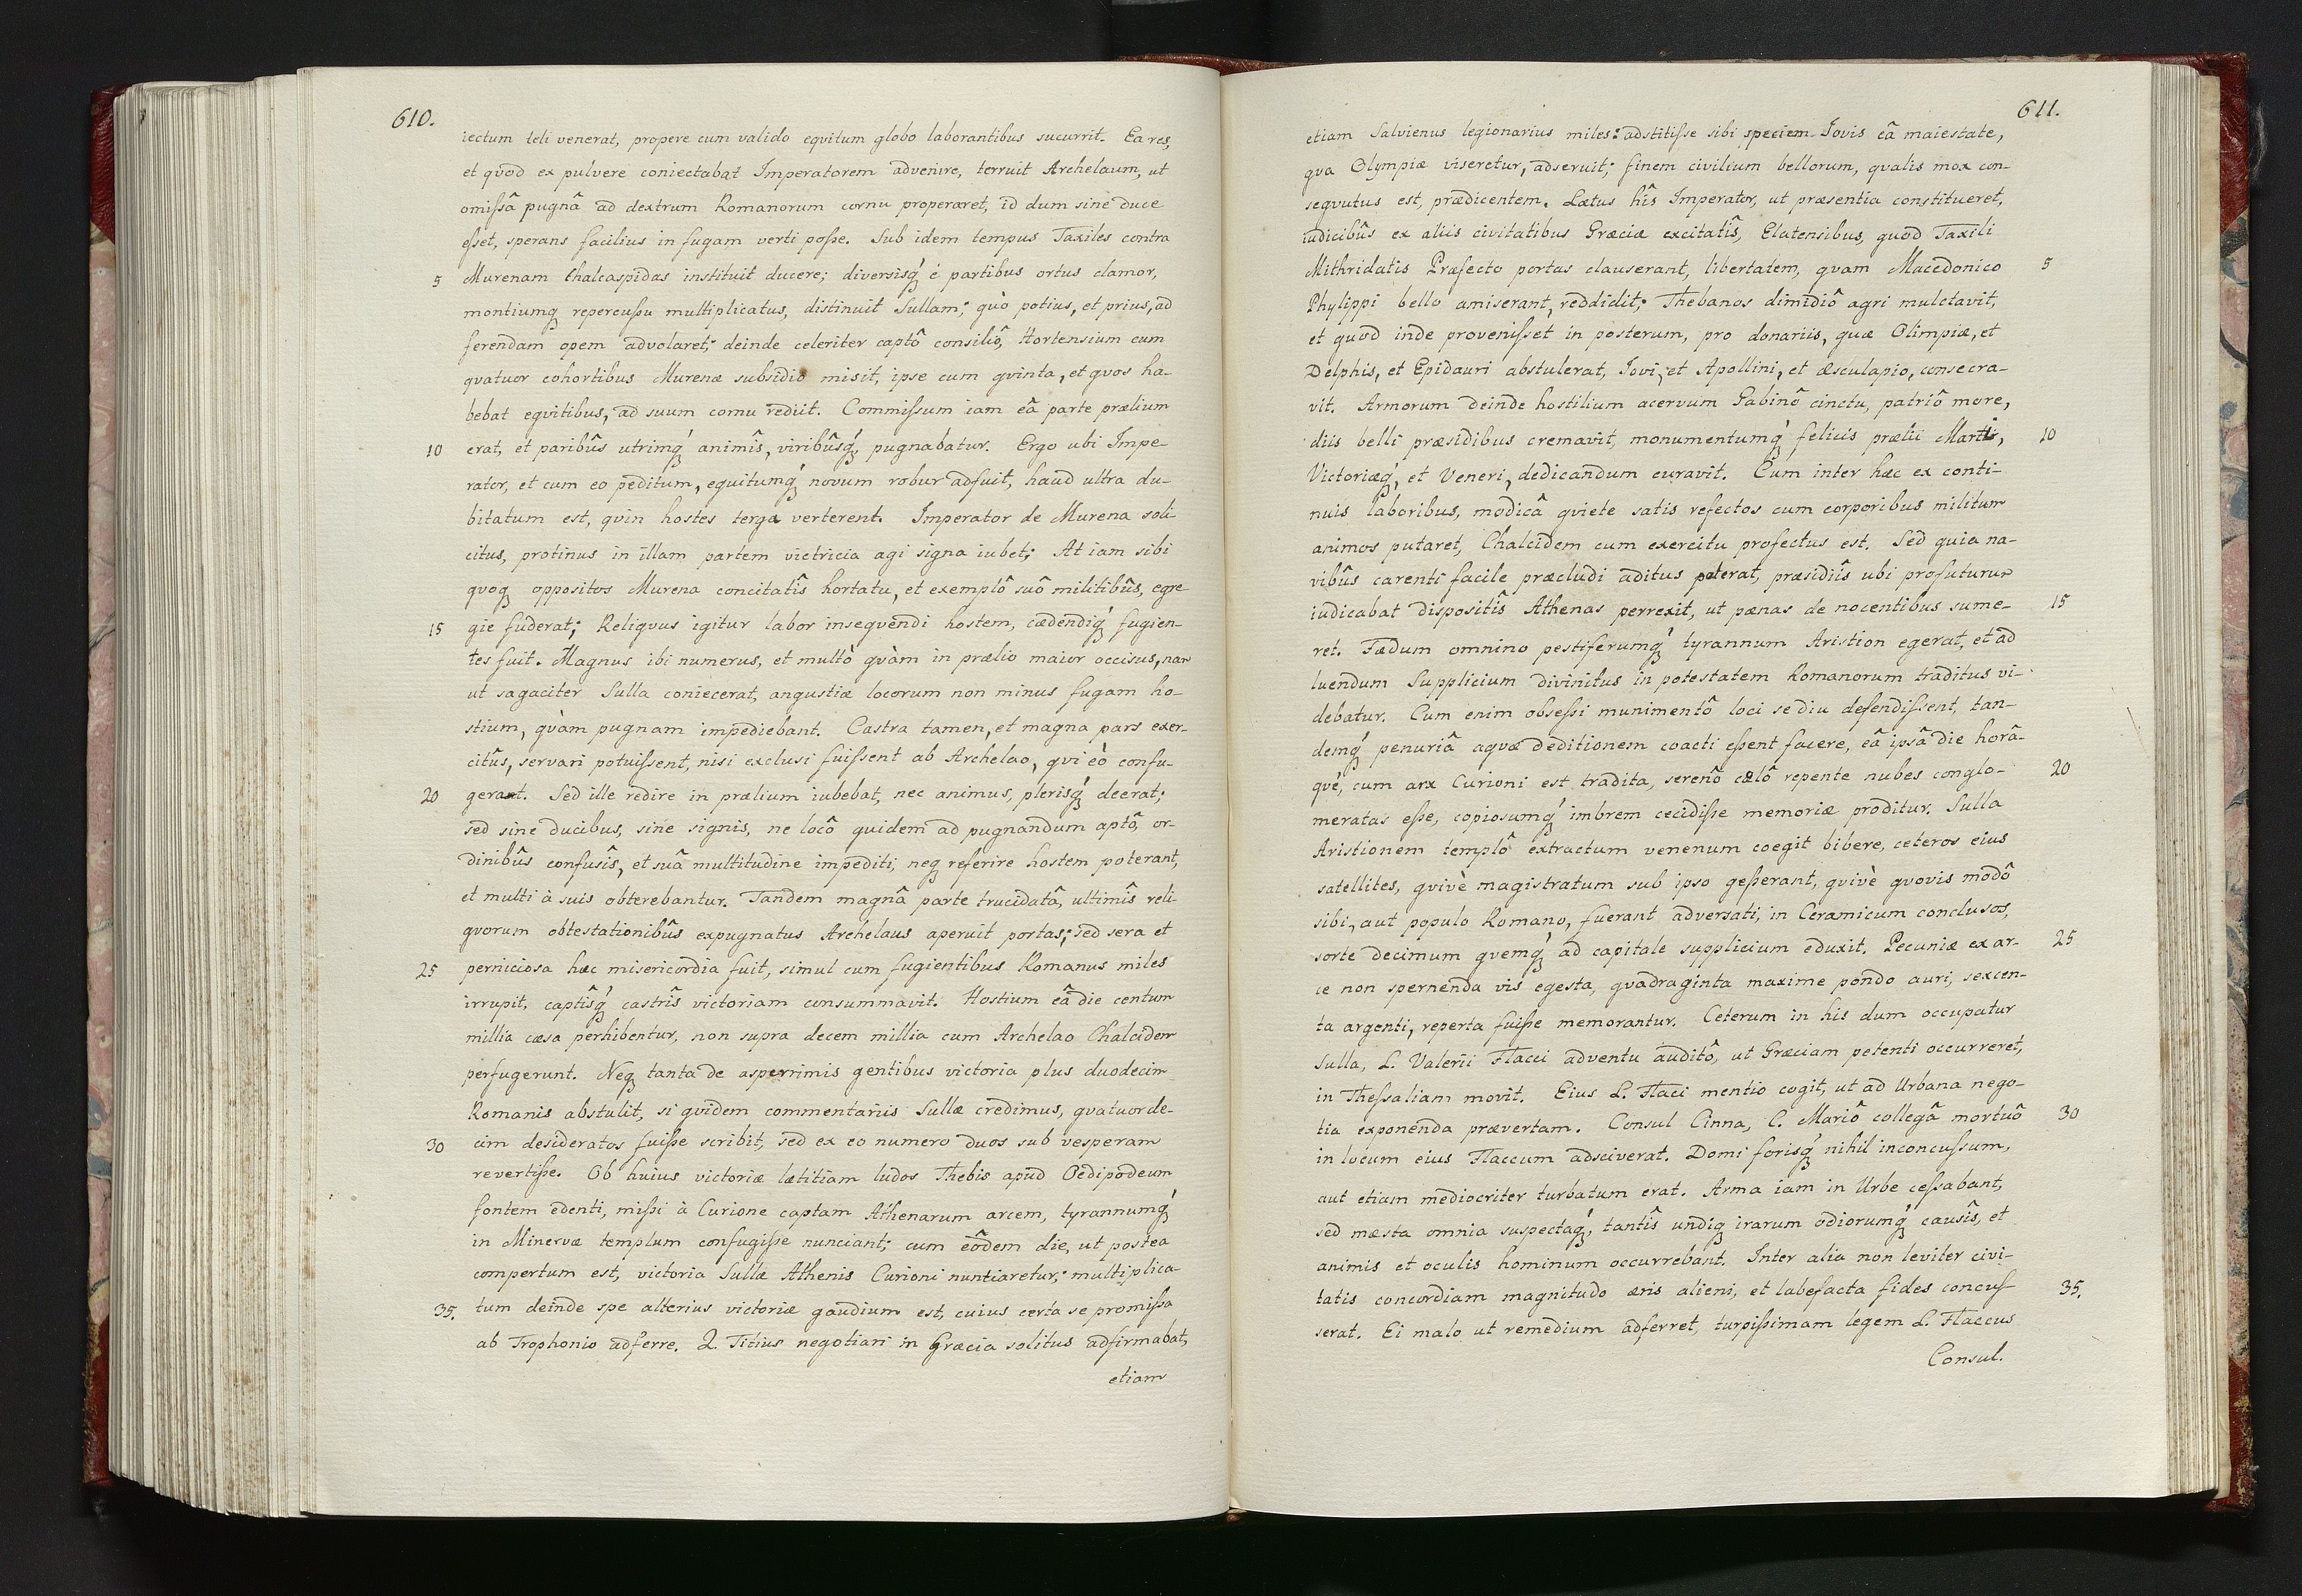 610.
iectum teli venerat, propere cum valido eqvitum globo laborantibus sucurrit. Ea res,
et qvod ex pulvere coniectabat Imperatorem advenire, terruit Archelaum, ut
omißâ pugnâ ad dextrum Romanorum cornu properaret, id dum sine duce
eßet, sperans facilius in fugam verti poße. Sub idem tempus Taxiles contra
5 Murenam Chalcaspidas instituit ducere; diversisq́ é partibus ortus clamor,
montiumq repercußu multiplicatus, distinuit Sullam; qvò potius, et prius, ad
ferendam opem advolaret; deinde celeriter captô consiliô, Hortensium cum
qvatuor cohortibus Murenæ subsidio misit, ipse cum qvinta, et qvos ha-
bebat eqvitibus, ad suum cornu rediit. Commißum iam eâ parte prælium
10 erat, et paribûs utrimq́ animîs, viribûsq́, pugnabatur. Ergo ubi Impe-
rator, et cum eo peditum, equitumq́ novum robur adfuit, haud ultra du-
bitatum est, qvin hostes terga verterent. Imperator de Murena soli
citus, protinus in illam partem victricia agi signa iubet; At iam sibi
qvoq oppositos Murena concitatîs hortatu, et exemplô suô militibûs, egre
15 gie fuderat; Reliqvus igitur labor inseqvendi hostem, cædendiq́ fugien-
tes fuit. Magnus ibi numerus, et multò qvàm in prælio maior occisus, nam
ut sagaciter Sulla coniecerat, angustiæ locorum non minus fugam ho-
stium, qvàm pugnam impediebant. Castra tamen, et magna pars exer-
citûs, servari potuißent, nisi exclusi fuißent ab Archelao, qvi eò confu-
20 gerant. Sed ille redire in prælium iubebat, nec animus, plerisq́ deerat;
sed sine ducibus, sine signis, ne locô quidem ad pugnandum aptô, or-
dinibûs confusîs, et suâ multitudine impediti, neq referire hostem poterant,
et multi à suis obterebantur. Tandem magnâ parte trucidatâ, ultimîs reli
qvorum obtestationibûs expugnatus Archelaus aperuit portas; sed sera et
25 perniciosa hæc misericordia fuit, simul cum fugientibus Romanus miles
irrupit, captîsq́ castrîs victoriam consummavit. Hostium eâ die centum
millia cæsa perhibentur, non supra decem millia cum Archelao Chalcidem
perfugerunt. Neq tanta de asperrimis gentibus victoria plus duodecim
Romanis abstulit, si qvidem commentariis Sullæ credimus, qvatuorde-
30 cim desideratos fuiße scribit, sed ex eo numero duos sub vesperam
revertiße. Ob huius victoriæ lætitiam ludos Thebis apud Oedipodeum
fontem edenti, mißi à Curione captam Athenarum arcem, tyrannumq́
in Minervæ templum confugiße nunciant; cum eôdem die, ut postea
compertum est, victoria Sullæ Athenis Curioni nuntiaretur; multiplica-
35. tum deinde spe alterius victoriæ gaudium est, cuius certa se promißa
ab Trophonio adferre. Q. Titius negotiari in Græcia solitus adfirmabat,
etiam
611.
etiam Salvienus legionarius miles: adstitiße sibi speciem Iovis eâ maiestate,
qva Olympiæ viseretur, adseruit; finem civilium bellorum, qvalis mox con-
seqvutus est, prædicentem. Lætus hîs Imperator, ut præsentia constitueret,
iudicibûs ex aliis civitatibus Græciæ excitatîs, Elatensibus, quod Taxili
Mithridatis Præfecto portas clauserant, libertatem, qvam Macedonico 5
Phylippi bello amiserant, reddidit; Thebanos dimidiô agri mulctavit,
et quod inde provenißet in posterum, pro donariis, quæ Olimpiæ, et
Delphis, et Epidauri abstulerat, Iovi, et Apollini, et Æsculapio, consecra-
vit. Armorum deinde hostilium acervum Gabinô cinctu, patriô more,
diis belli præsidibus cremavit, monumentumq́ felicis prælii Marti, 10
Victoriæq́, et Veneri, dedicandum curavit. Cum inter hæc ex conti-
nuis laboribus, modicâ qviete satis refectos cum corporibus militum
animos putaret, Chalcidem cum exercitu profectus est. Sed quia na-
vibûs carenti facile præcludi aditus poterat, præsidiîs ubi profuturum
iudicabat dispositîs Athenas perrexit, ut pænas de nocentibus sume- 15
ret. Fædum omnino pestiferumq́ tyrannum Aristion egerat, et ad
luendum Supplicium divinitus in potestatem Romanorum traditus vi-
debatur. Cum enim obseßi munimentô loci se diu defendißent, tan-
demq́ penuriâ aqvæ deditionem coacti eßent facere, eâ ipsâ die horâ-
qvé, cum arx Curioni est tradita, serenô cælô repente nubes conglo- 20
meratas eße, copiosumq́ imbrem cecidiße memoriæ proditur. Sulla
Aristionem templô extractum venenum coegit bibere, ceteros eius
satellites, qvivè magistratum sub ipso geßerant, qvivè qvovis modô
sibi, aut populo Romano, fuerant adversati, in Ceramicum conclusos,
sorte decimum qvemq́, ad capitale supplicium eduxit. Pecuniæ ex ar- 25
ce non spernenda vis egesta, qvadraginta maxime pondo auri, sexcen-
ta argenti, reperta fuiße memorantur. Ceterum in his dum occupatur
Sulla, L. Valerii Flacci adventu auditô, ut Græciam petenti occurreret,
in Theßaliam movit. Eius L. Flaci mentio cogit, ut ad Urbana nego-
tia exponenda prævertam. Consul Cinna, C. Mariô collegâ mortuô 30
in locum eius Flaccum adsciverat. Domi forisq́ nihil inconcußum,
aut etiam mediocriter turbatum erat. Arma iam in Urbe ceßabant,
sed mæsta omnia suspectaq́, tantîs undiq irarum odiorumq́ causîs, et
animis et oculis hominum occurrebant. Inter alia non leviter civi-
tatis concordiam magnitudo æris alieni, et labefacta fides concuſ 35.
serat. Ei malo ut remedium adferret, turpißimam legem L. Flaccus
Consul.